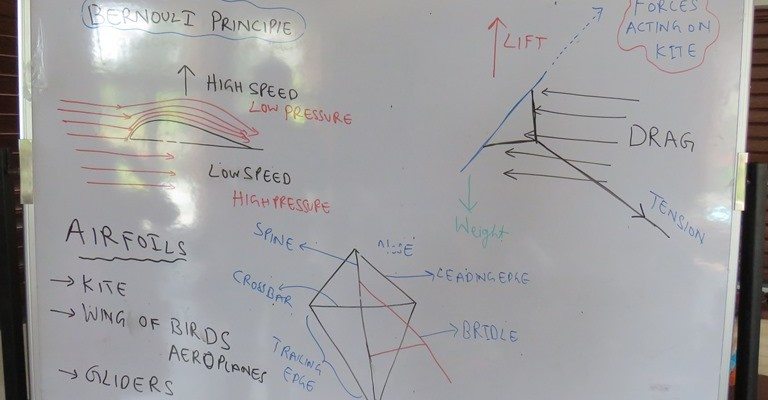 BERNOULI PRINCIPIE
HIGH SPEED
LOW PRESSURE
LOW SPEED
HIGH PRESSURE
FORCES
ACTING ON
KITE
LIFT
DRAG
TENSION
Weight
AIRFOILS
→ KITE
→ WING OF BIRDS
AEROPLANES
→ GLIDERS
SPINE
NOSE
CROSSBAR
LEADING EDGE
BRIDLE
TRAILING
EDGE